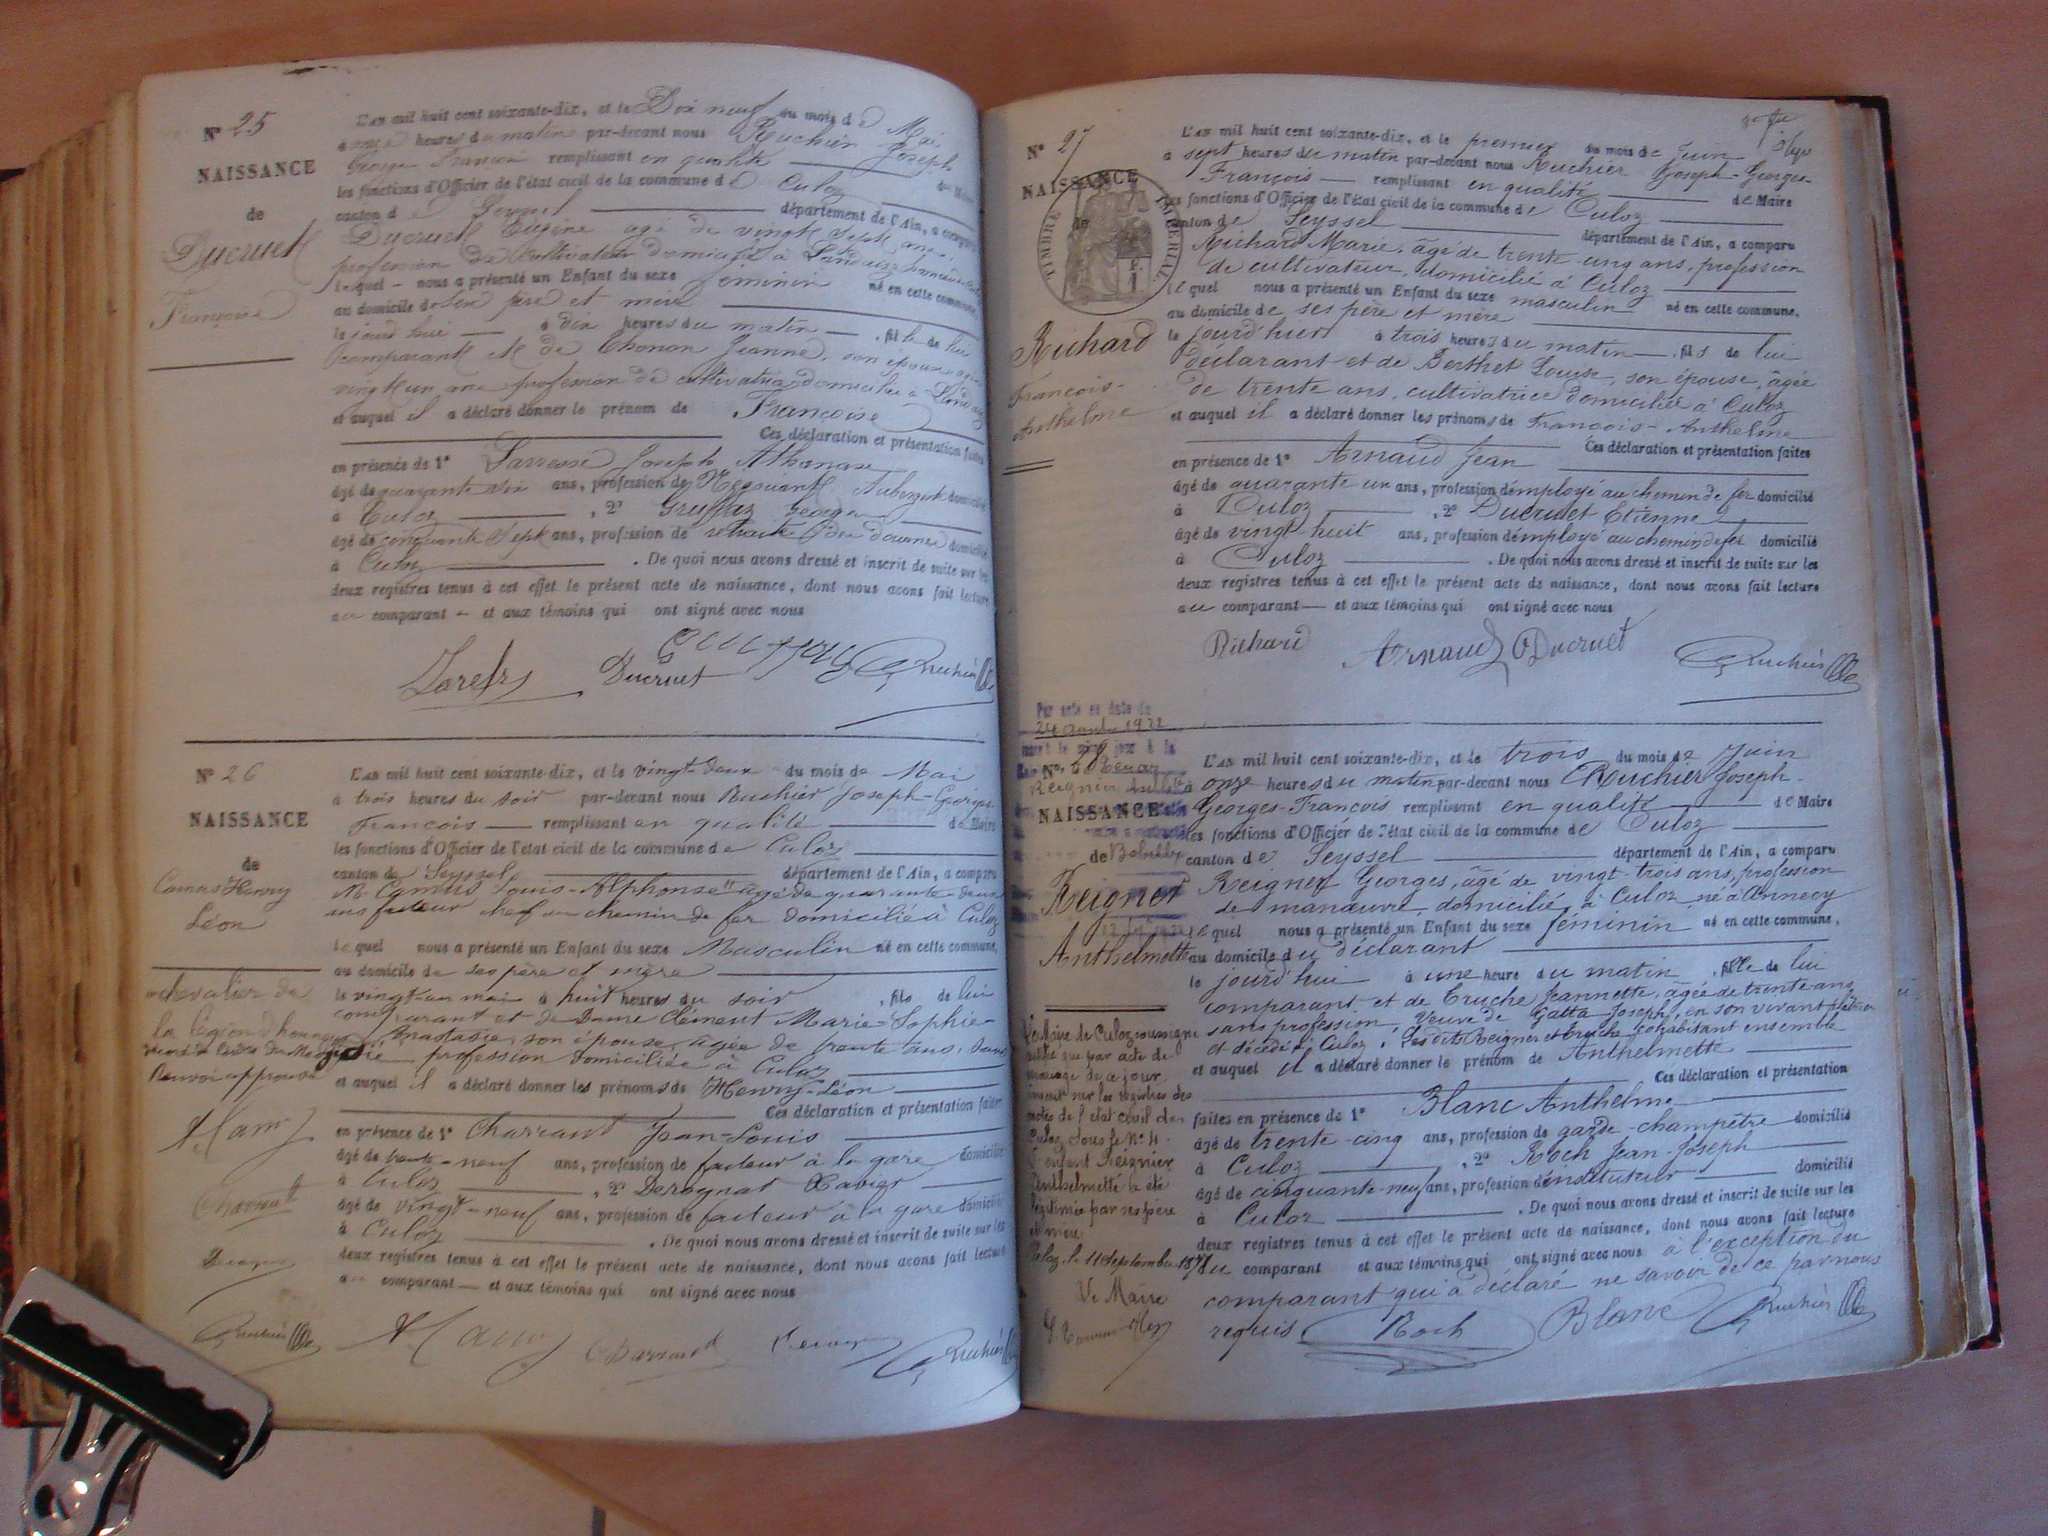 N° 25
NAISSANCE
de
Ducruet
Françoise
L'an mil huit cent soixante-dix, et le Dix neuf du mois de Mai
à onze heures du matin par-devant nous Ruchier Joseph
George François remplissant en qualité de Maire
les fonctions d'Officier de l'état civil de la commune de Culoz
canton de Seyssel département de l'Ain, a comparu
Ducruet Eugène agé de vingt sept ans
profession de cultivateur domicilié à
lequel nous a présenté un Enfant du sexe féminin né en cette commune,
au domicile de ses père et mère
le jourd'hui à dix heures du matin, fille de lui
comparant et de Chonon Jeanne, son épouse agée
vingt un ans profession de cultivatrice domiciliée à
et auquel il a déclaré donner le prénom de Françoise
Ces déclaration et présentation faites
en présence de 1° Joseph Athanase
âgé de quarante six ans, profession de Négociant Aubergiste domicilié
à Culoz, 2° Greffaz George
âgé de cinquante sept ans, profession de retraité des douanes domicilié
à Culoz. De quoi nous avons dressé et inscrit de suite sur les
deux registres tenus à cet effet le présent acte de naissance, dont nous avons fait lecture
au comparant et aux témoins qui ont signé avec nous
Ducruet Ruchier
N° 26
NAISSANCE
de
Camus Henry
Léon
L'an mil huit cent soixante-dix, et le vingt-deux du mois de Mai
à trois heures du soir par-devant nous Ruchier Joseph-Georges
François remplissant en qualité de Maire
les fonctions d'Officier de l'état civil de la commune de Culoz
canton de Seyssel département de l'Ain, a comparu
Mr Camus Louis-Alphonse agé de quarante-deux
ans facteur chef au chemin de fer domicilié à Culoz
lequel nous a présenté un Enfant du sexe Masculin né en cette commune,
au domicile de ses père et mère
le vingt-un mai à huit heures du soir, fils de lui
comparant et de Dame Clément Marie-Sophie-
Anastasie, son épouse, agée de trente ans, sans
profession domiciliée à Culoz
et auquel il a déclaré donner les prénoms de Henry-Léon
Ces déclaration et présentation faites
en présence de 1° Charraut Jean-Louis
âgé de trente-neuf ans, profession de facteur à la gare domicilié
à Culoz, 2° Derognat Xavier
âgé de vingt-neuf ans, profession de facteur à la gare domicilié
à Culoz. De quoi nous avons dressé et inscrit de suite sur les
deux registres tenus à cet effet le présent acte de naissance, dont nous avons fait lecture
au comparant et aux témoins qui ont signé avec nous
chevalier de
la légion d'honneur
Renvoi approuvé
Ruchier
Ruchier
N° 27
NAISSANCE
de
TIMBRE IMPÉRIAL
Richard
François-
Anthelme
L'an mil huit cent soixante-dix, et le premier du mois de juin
à sept heures du matin par-devant nous Ruchier Joseph-Georges-
François remplissant en qualité de Maire
les fonctions d'Officier de l'état civil de la commune de Culoz
canton de Seyssel département de l'Ain, a comparu
Richard Marie, âgé de trente cinq ans, profession
de cultivateur, domicilié à Culoz
lequel nous a présenté un Enfant du sexe masculin né en cette commune,
au domicile de ses père et mère
le jourd'hui à trois heures du matin, fils de lui
déclarant et de Berthet Louise, son épouse, âgée
de trente ans, cultivatrice domiciliée à Culoz
et auquel il a déclaré donner les prénoms de François-Anthelme
Ces déclaration et présentation faites
en présence de 1° Arnaud Jean
âgé de quarante un ans, profession d'employé au chemin de fer domicilié
à Culoz, 2° Ducruet Etienne
âgé de vingt-huit ans, profession d'employé au chemin de fer domicilié
à Culoz. De quoi nous avons dressé et inscrit de suite sur les
deux registres tenus à cet effet le présent acte de naissance, dont nous avons fait lecture
au comparant et aux témoins qui ont signé avec nous
Richard Arnaud Ducruet Ruchier
Par acte en date du
N°
NAISSANCE
de
Reignier
Anthelmette
L'an mil huit cent soixante-dix, et le trois du mois de Juin
à onze heures du matin par-devant nous Ruchier Joseph-
Georges-François remplissant en qualité de Maire
les fonctions d'Officier de l'état civil de la commune de Culoz
canton de Seyssel département de l'Ain, a comparu
Reignier Georges, âgé de vingt-trois ans, profession
de manœuvre, domicilié à Culoz né à Annecy
lequel nous a présenté un Enfant du sexe féminin né en cette commune,
au domicile du déclarant
le jourd'hui à une heure du matin, fille de lui
comparant et de Truche Jeannette, âgée de trente ans
sans profession, veuve de Gatta Joseph, en son vivant
et décédé à Culoz. Les dits Reignier et Truche cohabitant ensemble
et auquel il a déclaré donner le prénom de Anthelmette
Ces déclaration et présentation
faites en présence de 1° Blanc Anthelme
âgé de trente-cinq ans, profession de garde-champêtre domicilié
à Culoz, 2° Roch Jean-Joseph
âgé de cinquante-neuf ans, profession d'instituteur domicilié
à Culoz. De quoi nous avons dressé et inscrit de suite sur les
deux registres tenus à cet effet le présent acte de naissance, dont nous avons fait lecture
au comparant et aux témoins qui ont signé avec nous à l'exception du
comparant qui a déclaré ne savoir de ce par nous
requis
Roch Blanc Ruchier
Le Maire de Culoz soussigné
que par acte de
mariage de ce jour
inscrit sur les registres des
actes de l'état civil de
Culoz sous le N° 4
l'enfant Reignier
Anthelmette a été
légitimée par ses père
et mère
Culoz, le 11 Septembre 187
Le Maire